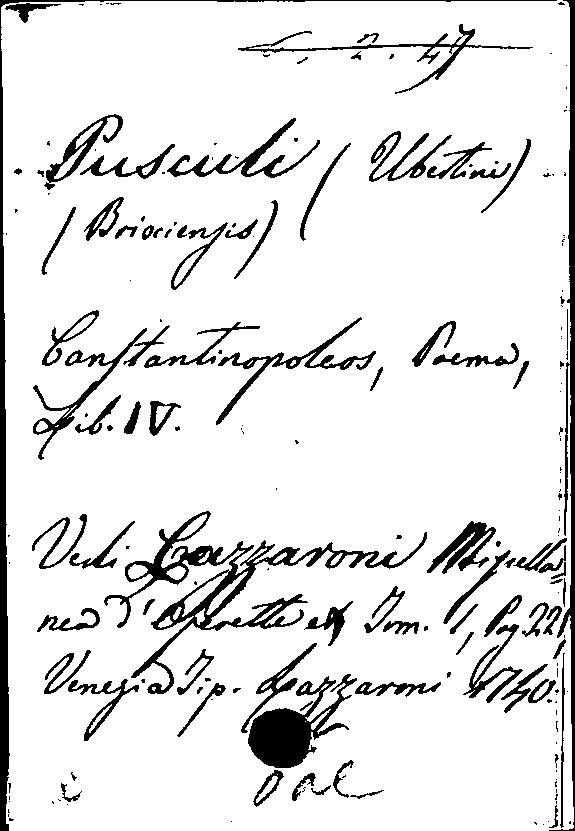 6. 2. 47
Pusculi (Ubertini)
(Brixiensis)
Constantinopoleos, Poema,
Lib. IV.
Vedi Lazzaroni Miscella=
nea d'Operette Tom. 1, Pag. 221,
Venezia Tip. Lazzaroni 1740.